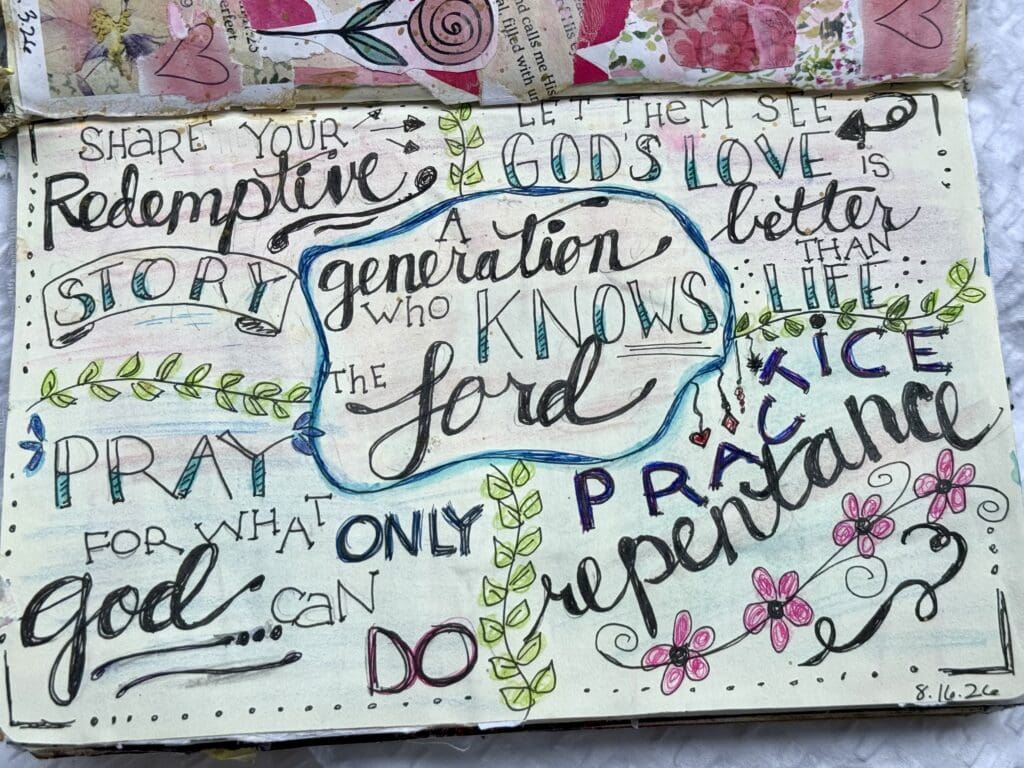 .3.26
and calls me His
al filled with un
SHARE YOUR
Redemptive
STORY
LET THEM SEE
GOD'S LOVE IS
better
THAN
LIFE
A
generation
WHO KNOWS
THE
Lord
PRAY
FOR WHAT ONLY
god CAN
DO
PRACTICE
repentance
8.16.26